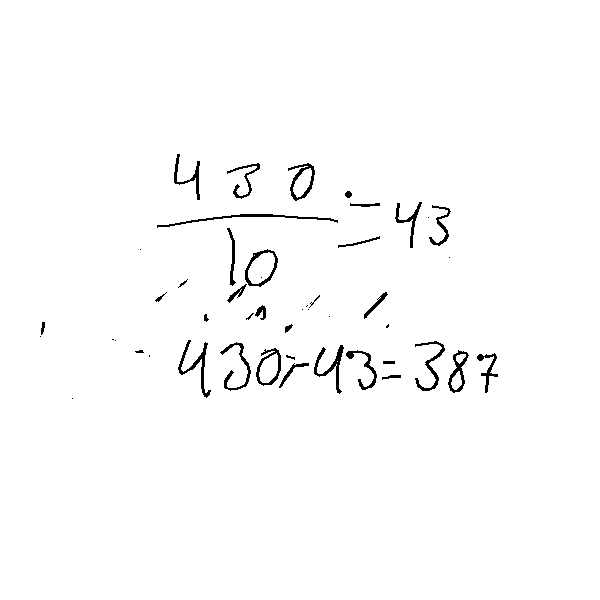 430/10 = 43
430-43=387